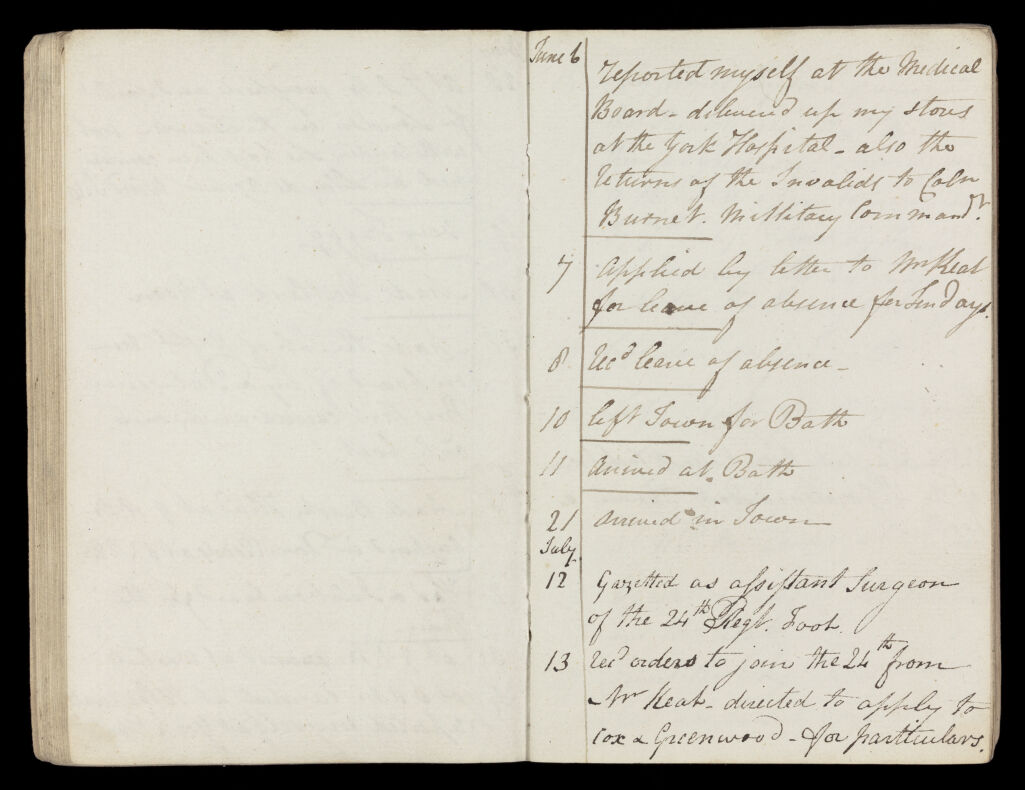 June 6
reported myself at the Medical
Board - delivered up my stores
at the York Hospital - also the
returns of the Invalids to Coln
Burnet. Millitary Commandt.
7 Applied by letter to Mr Keat
for leave of absence for Ten days.
8 recd leave of absence -
10 left Town for Bath
11 arrived at Bath
21 arrived in Town
July
12 Gazetted as assistant Surgeon
of the 24th Regt. Foot.
13 recd orders to join the 24th from
Mr Keat - directed to apply to
Cox & Greenwood - for particulars.